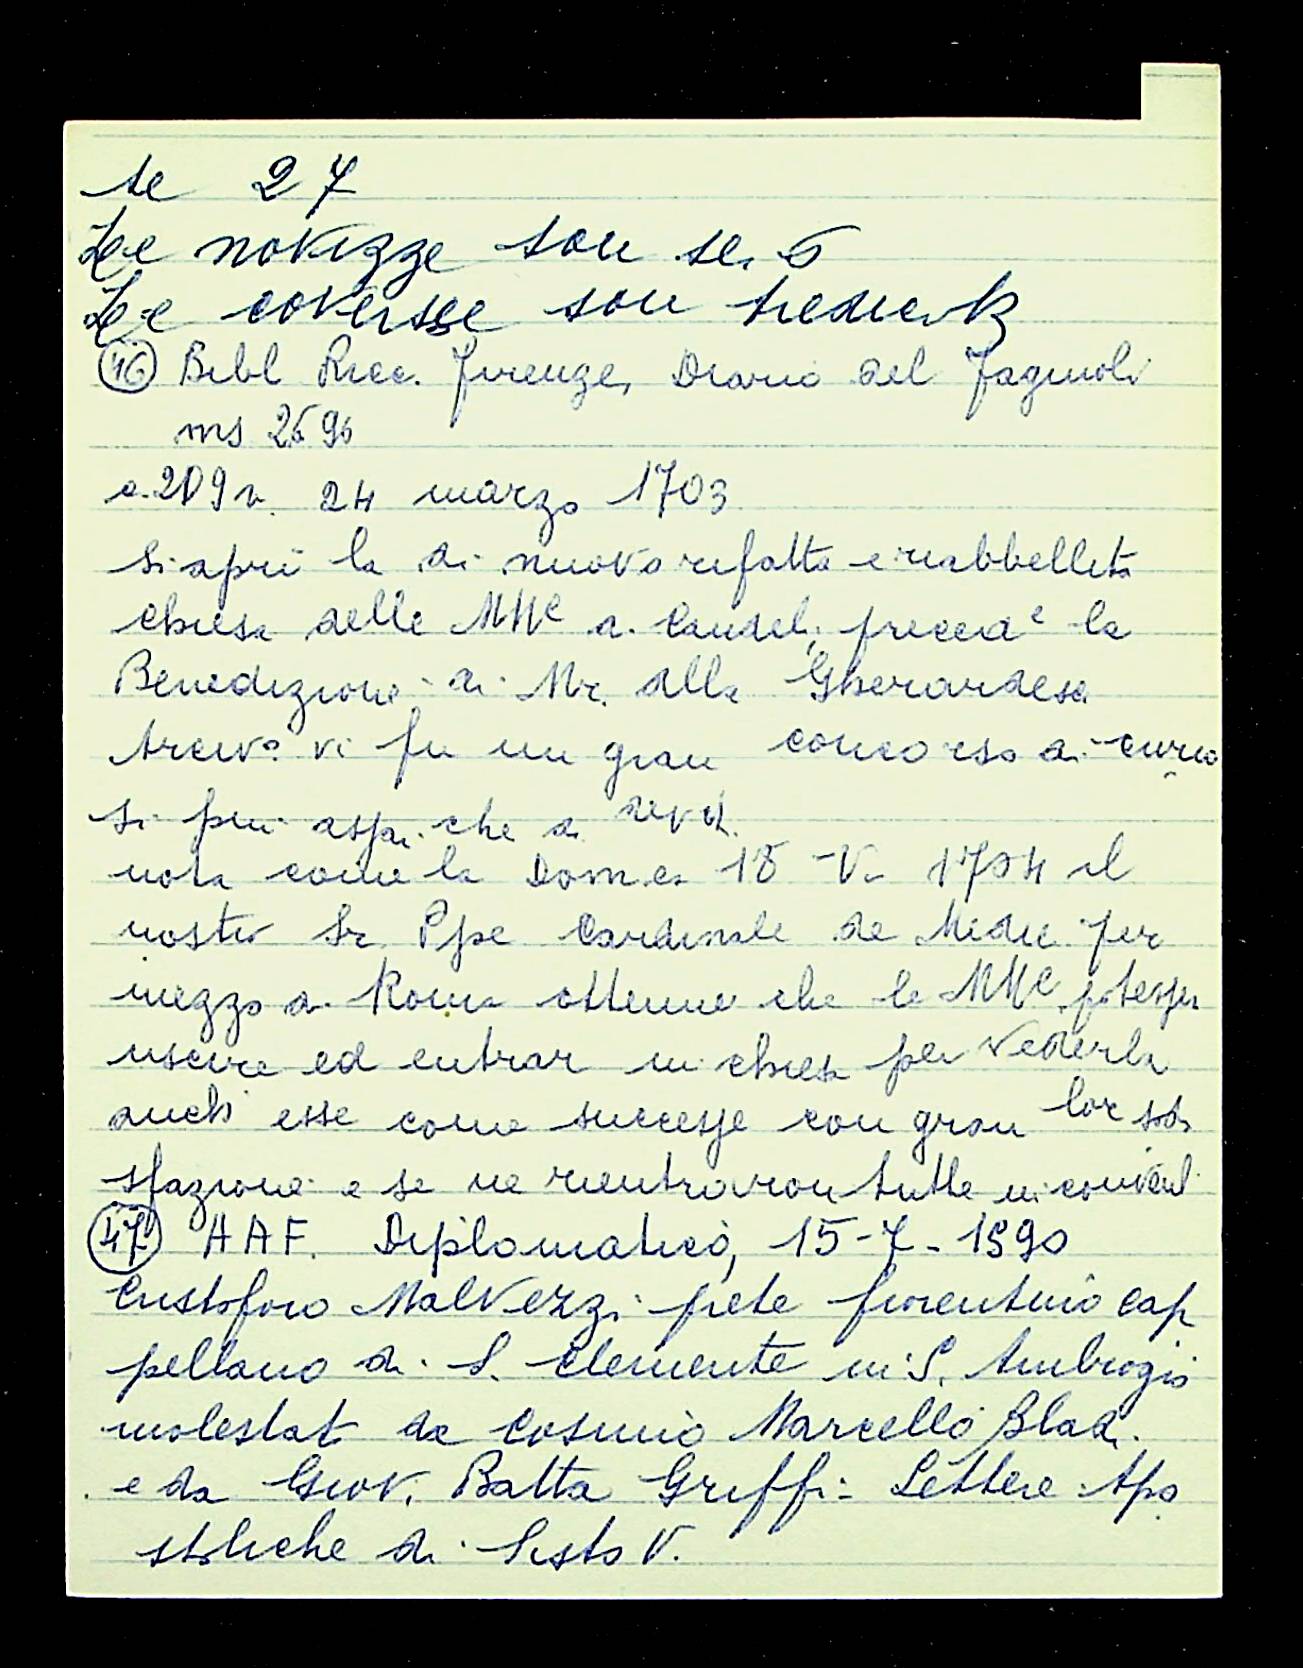 te 27
Le novizze son sei 6
Le converse son tredici 13
46 Bibl Ricc. Firenze, Diario del Fagiuoli
ms 2696
c.209v. 24 marzo 1703
Si aprì la di nuovo rifatta e riabbellita
chiesa delle MMe di Candeli, precede la
Benedizione di Mr. della Gherardesca
Arciv. vi fu un gran concorso di curio
si più assai che di devoti.
nota come la Domca 18 - V - 1704 il
nostro Sr. Ppe Cardinale de Medici per
mezzo di Roma ottenne che le MMe potesser
uscire ed entrar in chiesa per vederla
anch esse come successe con gran lor sod
sfazione e se ne rientraron tutte in convent
47 AAF. Diplomatico, 15-7-1590
Cristoforo Malvezzi prete fiorentino cap
pellano di S. Clemente in S. Ambrogio
molestato da Cosimo Marcello
e da Giov. Batta Griffi: Lettere Apo
stoliche di Sisto V.